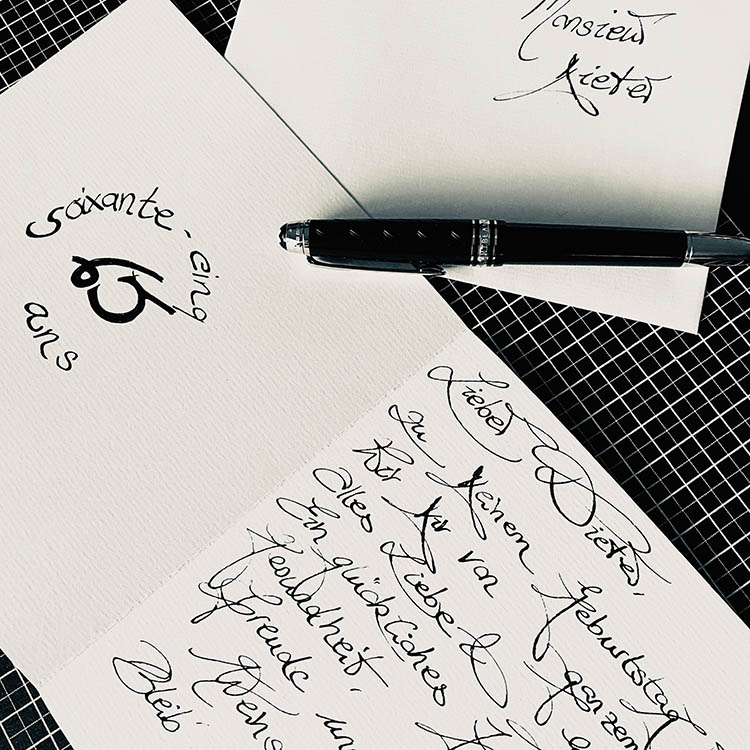 Monsieur
Dieter
soixante-cinq
65
ans
Lieber Dieter,
zu Deinem Geburtstag
Dir von ganzem
alles Liebe &
Ein glückliches
Gesundheit,
Freude un
Bleib